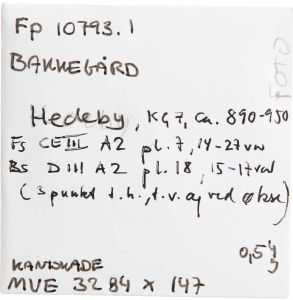 Fp 10793.1
FOTO
BAKKEGÅRD
Hedeby, KG7, ca. 890-950
Fs CE III A2 pl. 7, 14-27 var
Bs D III A2 pl. 18, 15-17 var
(3 punkt t.h., t.v. og ved økse)
0,54 g
KANTSKADE
MVE 3284 x 147